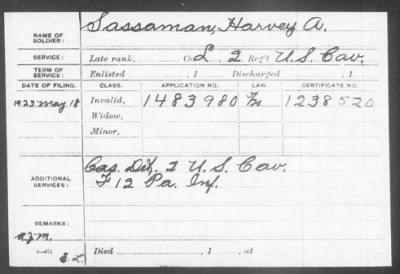 NAME OF SOLDIER: Sassaman, Harvey A.
SERVICE: Late rank, Co. L, 2 Reg't U.S. Cav.
TERM OF SERVICE: Enlisted , 1 Discharged , 1
DATE OF FILING. CLASS. APPLICATION NO. LAW. CERTIFICATE NO.
1923 May 18 Invalid, 1483980 1238520
Widow,
Minor,
ADDITIONAL SERVICES: Cas. Det. 2 U.S. Cav.
F 12 Pa. Inf.
REMARKS:
Died , 1 , at